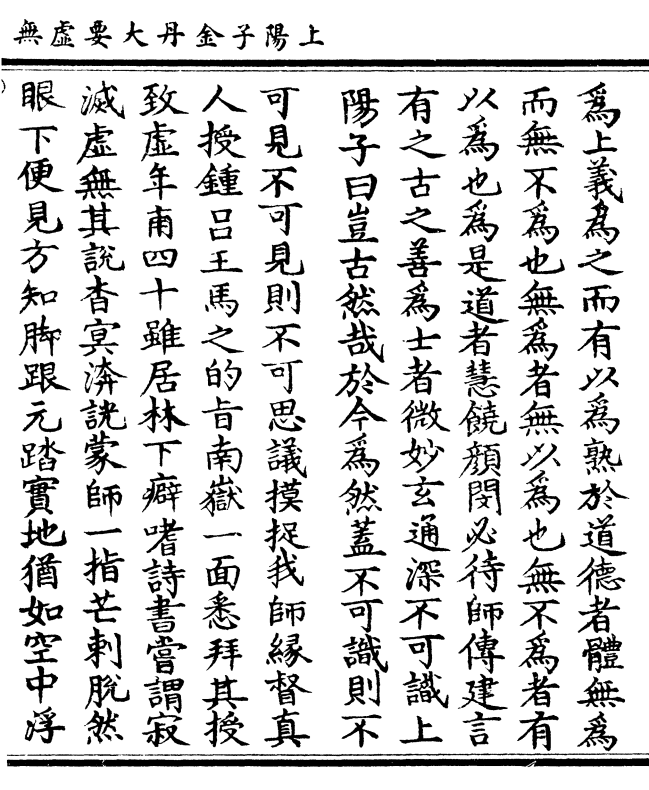 上陽子金丹大要虛無
爲上義爲之而有以爲熟於道德者體無爲
而無不爲也無爲者無以爲也無不爲者有
以爲也爲是道者慧饒顔閔必待師傳建言
有之古之善爲士者微妙玄通深不可識上
陽子曰豈古然哉於今爲然蓋不可識則不
可見不可見則不可思議摸捉我師緣督真
人授鍾吕王馬之的旨南嶽一面悉拜其授
致虛年甫四十雖居林下癖嗜詩書嘗謂寂
滅虛無其說杳冥蒙師一指芒刺脫然
眼下便見方知脚跟元踏實地猶如空中浮